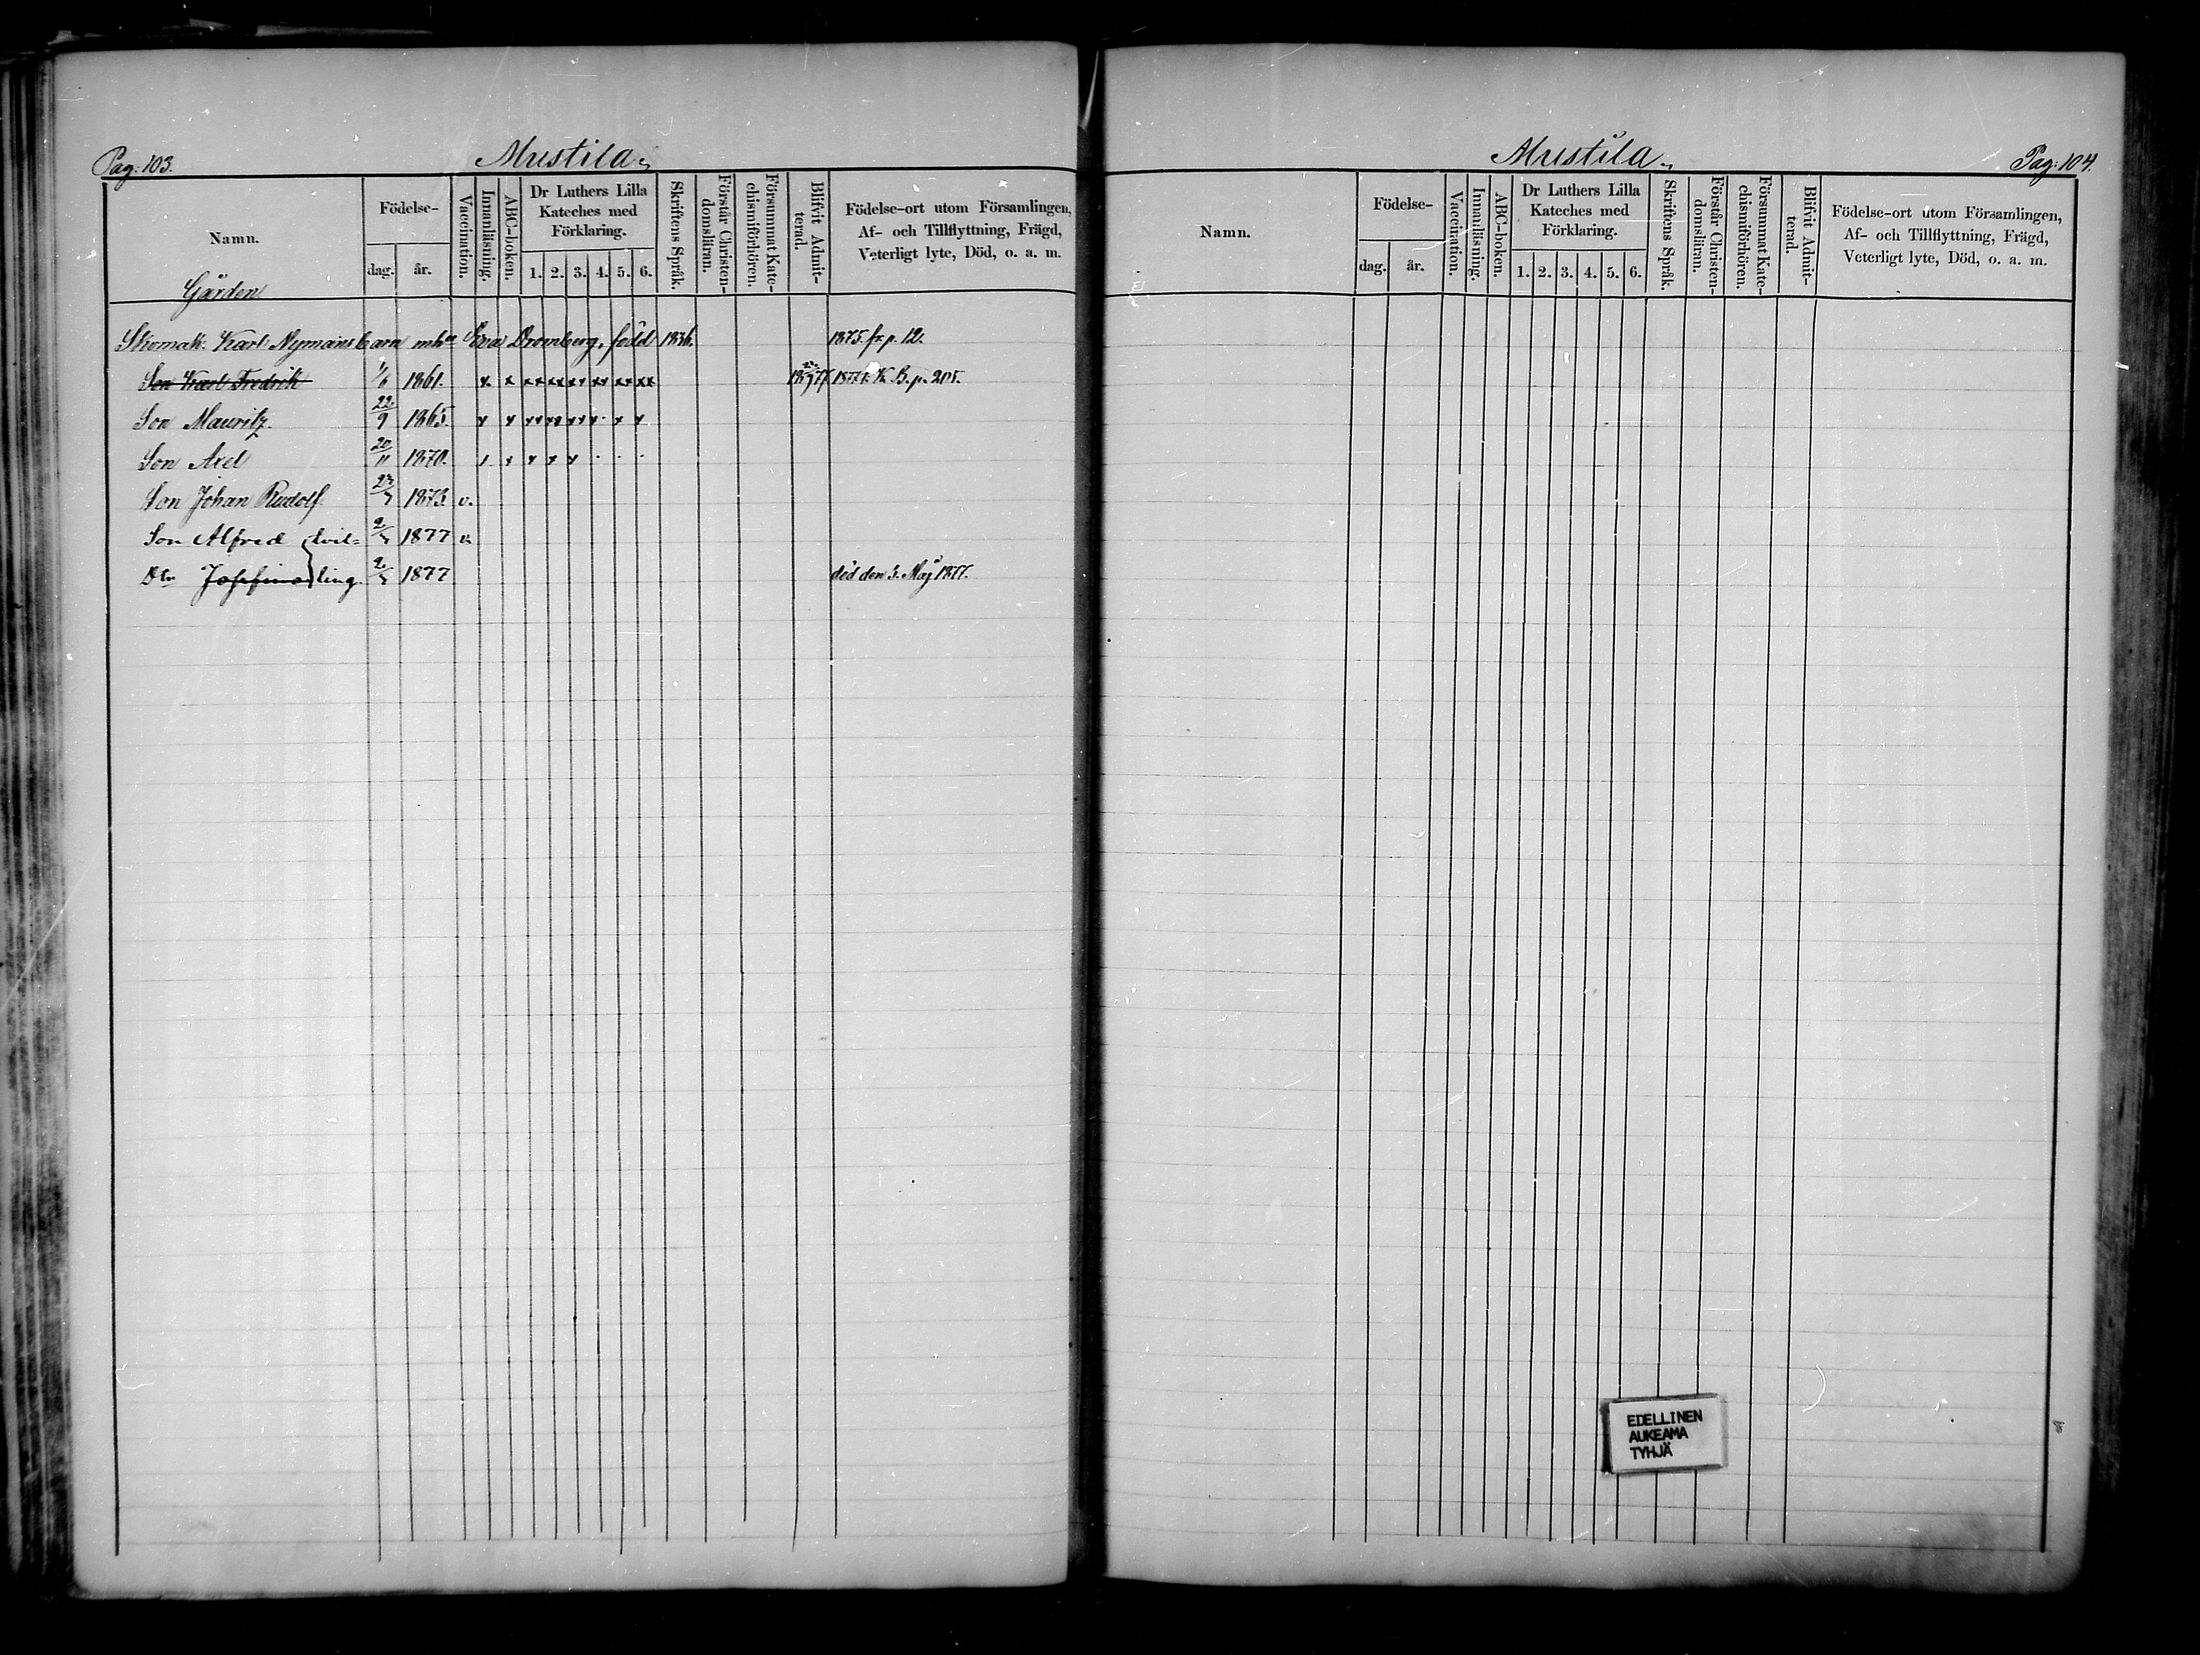 Pag: 103. Mustila.
Namn. Födelse- dag. år. Vaccination. Innanläsning. ABC-boken. Dr Luthers Lilla Kateches med Förklaring. 1. 2. 3. 4. 5. 6. Skriftens Språk. Förstår Christendomsläran. Försummat Katechismiförhören. Blifvit Admitterad. Födelse-ort utom Församlingen, Af- och Tillflyttning, Frägd, Veterligt lyte, Död, o. a. m.
Gården
Skomak. Karl Nymans barn mhu Eva Dromberg, född 1836. 1875. fr. p. 12.
Son Karl Fredrik 1/6 1861. x x xx xx xx xx xx xx K. B. p. 205.
Son Mauritz. 22/9 1865. x x xx xx xx x x x
Son Axel 20/11 1870. x x x x x
Son Johan Rudolf. 1873. v.
Son Alfred tvil= 1877 v.
Dtr Josefina ling. 1877 död den 3. Maj 1877.
Mustila. Pag: 104.
Namn. Födelse- dag. år. Vaccination. Innanläsning. ABC-boken. Dr Luthers Lilla Kateches med Förklaring. 1. 2. 3. 4. 5. 6. Skriftens Språk. Förstår Christendomsläran. Försummat Katechismiförhören. Blifvit Admitterad. Födelse-ort utom Församlingen, Af- och Tillflyttning, Frägd, Veterligt lyte, Död, o. a. m.
EDELLINEN
AUKEAMA
TYHJÄ